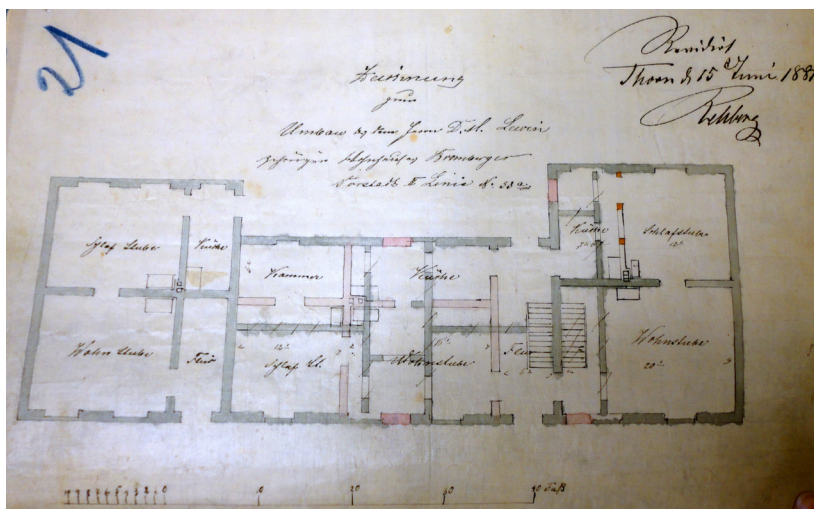 21
Revidirt
Thorn d 15 Juni 188
Rehberg
Zeichnung
zum
Umbau des dem Herrn D. M. Lewin
gehörigen Wohnhauses Bromberger
Vorstadt II Linie N: 33a
Schlaf Stube
Küche
Kammer
Küche
Küche
Schlafstube
Wohn Stube
Flur
Schlaf St.
Wohnstube
Flur
Wohnstube
20
0
10
20
30
40 Fuß